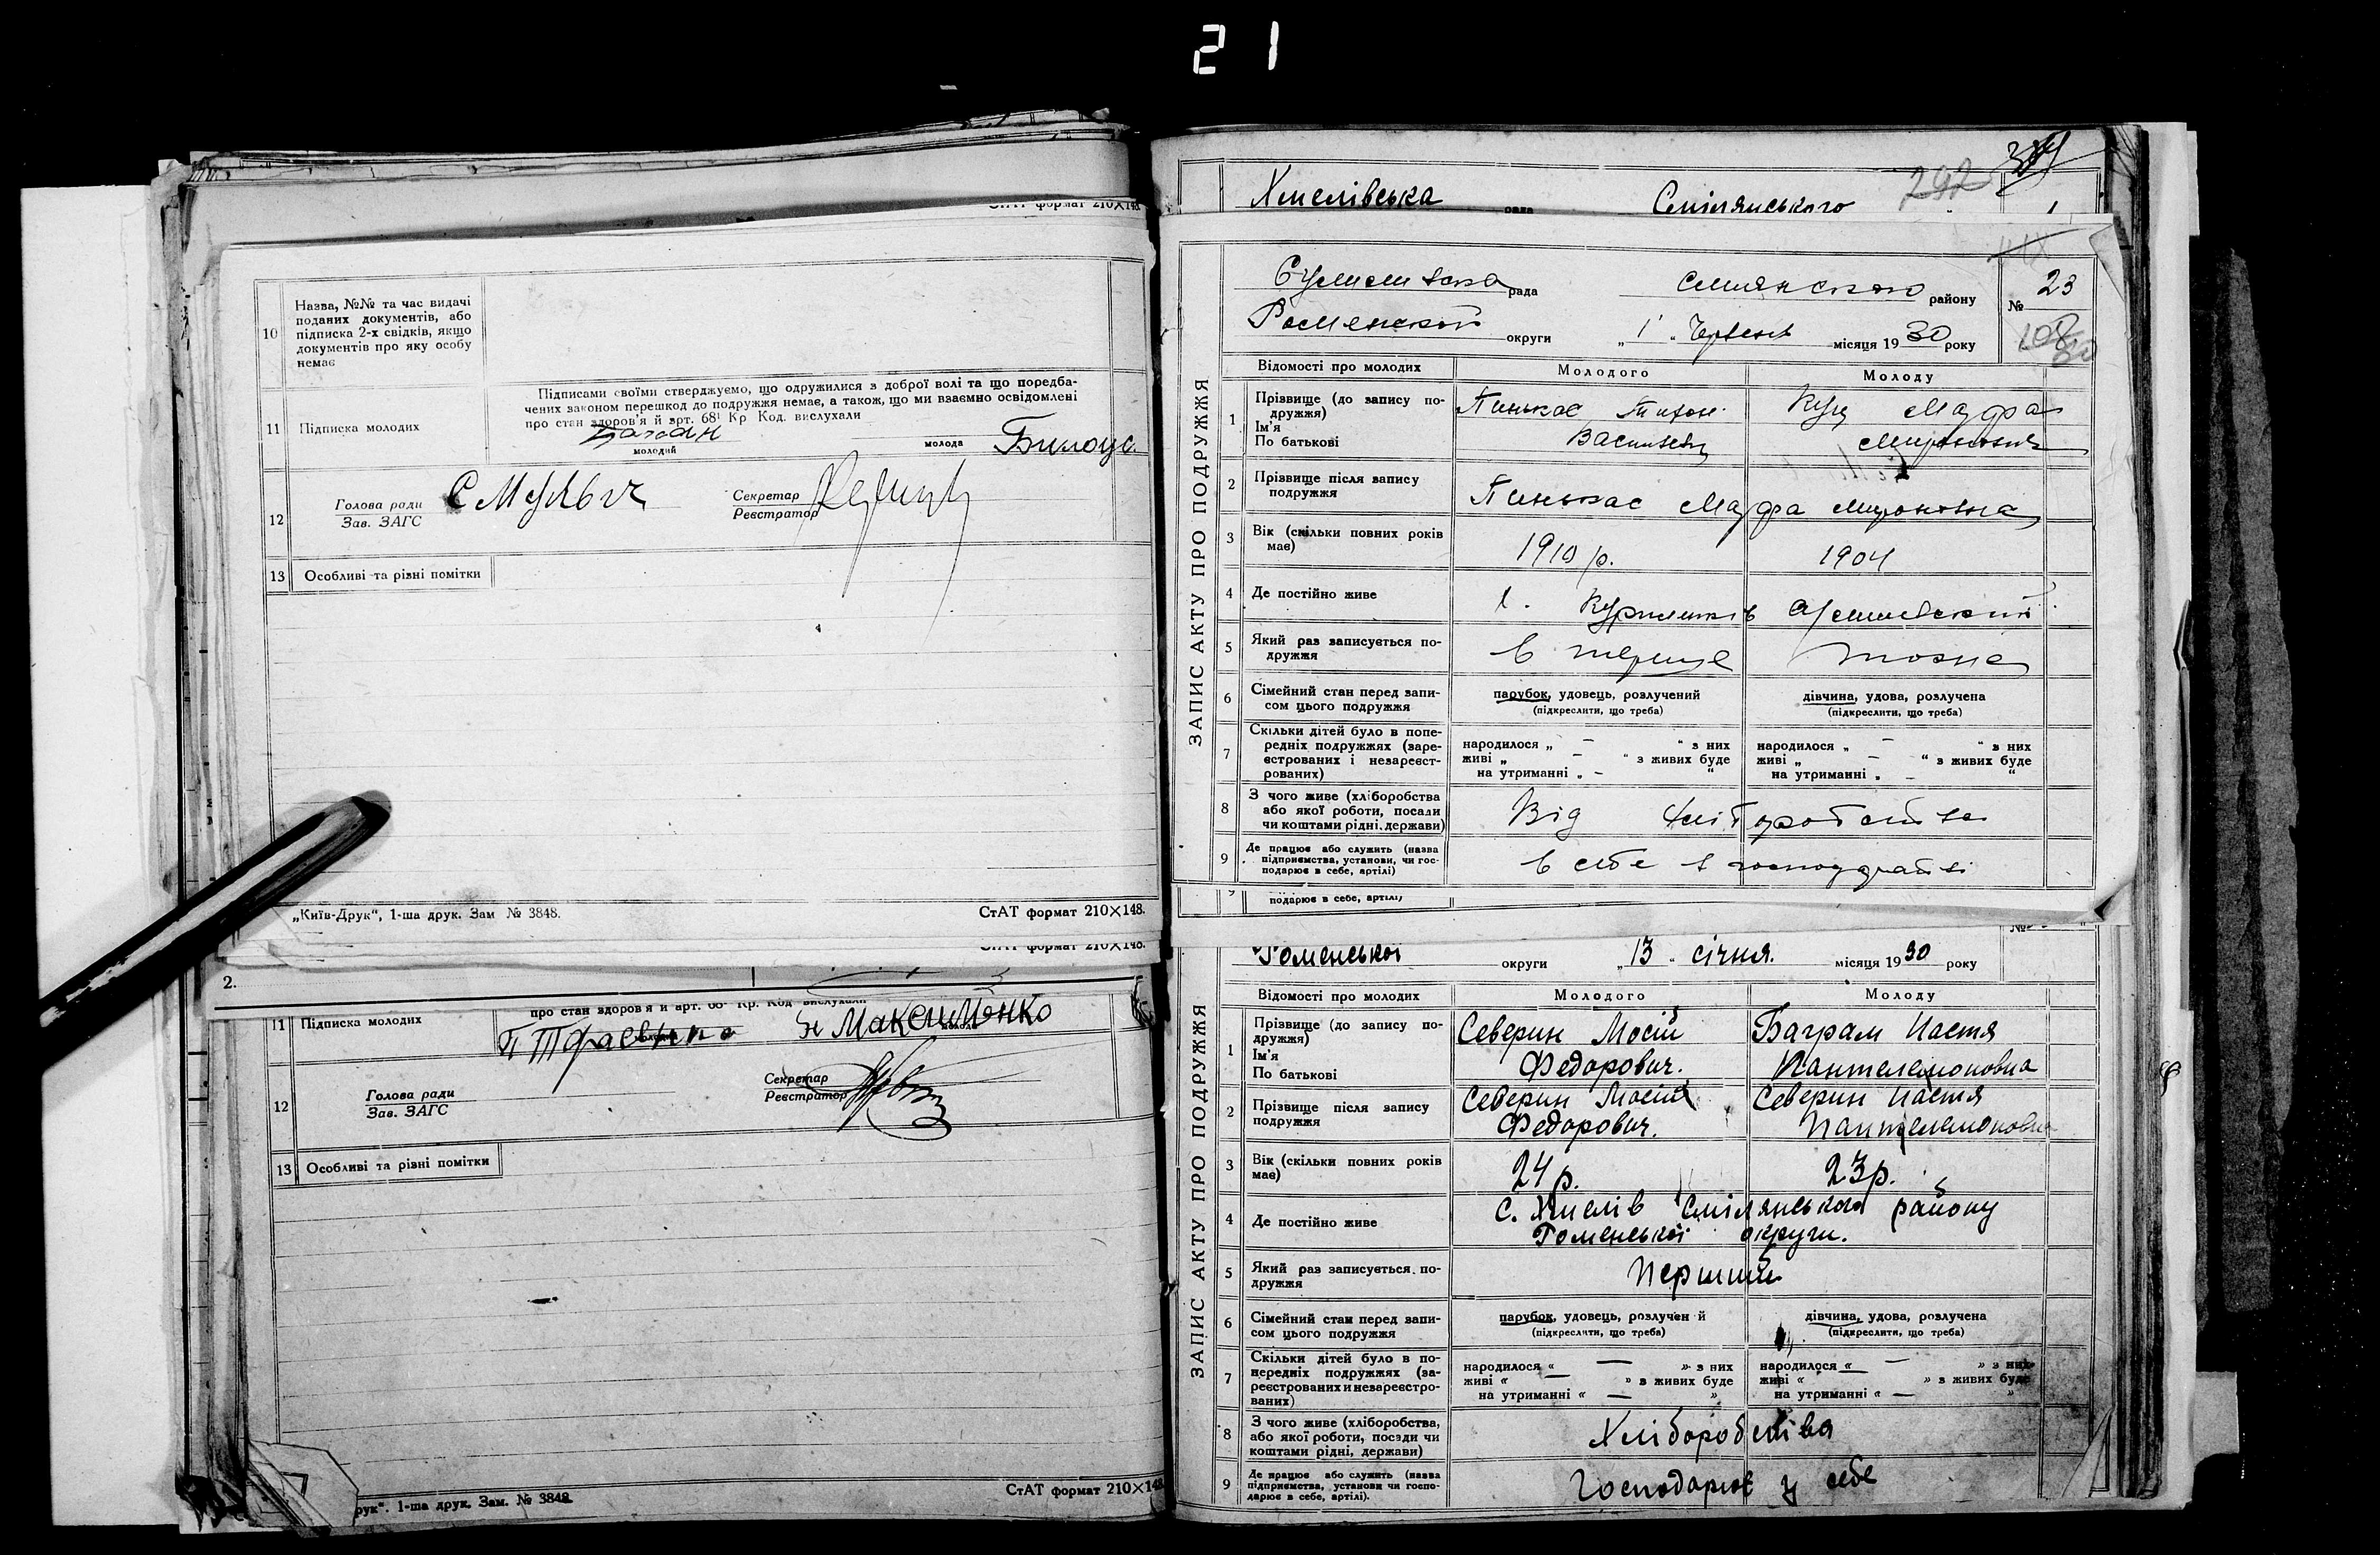 21
СтАТ формат 210×148
10 Назва, №№ та час видачі
поданих документів, або
підписка 2-х свідків, якщо
документів про яку особу
немає
Підписами своїми стверджуємо, що одружилися з доброї волі та що поредба-
чених законом перешкод до подружжя немає, а також, що ми взаємно освідомлені
про стан здоров'я й арт. 68¹ Кр Код. вислухали
11 Підписка молодих
молодий молода Билоус
12 Голова ради Секретар
Зав. ЗАГС Реєстратор
13 Особливі та різні помітки
„Київ-Друк“, 1-ша друк. Зам № 3848. СтАТ формат 210×148.
СтАТ формат 210×148.
2.
про стан здоров'я й арт. 68¹ Кр. Код вислухали
11 Підписка молодих
Максименко
12 Голова ради Секретар
Зав. ЗАГС Реєстратор
13 Особливі та різні помітки
рук“. 1-ша друк. Зам. № 3848 СтАТ формат 210×148
292
Хмелівська рада Смілянського
ЗАПИС АКТУ ПРО ПОДРУЖЖЯ
рада району № 23
Роменской округи „1“ Червень місяця 1930 року
Відомості про молодих Молодого Молоду
1 Прізвище (до запису по-
дружжя)
Ім'я
По батькові
Пинькас Тихон
Васильев
Куц Мафра
2 Прізвище після запису
подружжя
Пинькас Мафра Мироновна
3 Вік (скільки повних років
має)
1910 р. 1904
4 Де постійно живе
5 Який раз записується по-
дружжя
в перше тоже
6 Сімейний стан перед запи-
сом цього подружжя
парубок, удовець, розлучений
(підкреслити, що треба)
дівчина, удова, розлучена
(підкреслити, що треба)
7 Скільки дітей було в попе-
редніх подружжях (заре-
єстрованих і незареєст-
рованих)
народилося „ — “ з них
живі „ — “ з живих буде
на утриманні „ — “
народилося „ — “ з них
живі „ — “ з живих буде
на утриманні „ — “
8 З чого живе (хліборобства
або якої роботи, посади
чи коштами рідні, держави)
Від хліборобства
9 Де працює або служить (назва
підприємства, установи, чи гос-
подарює в себе, артілі)
в себе в господрастві
9 подарює в себе, артілі)
ЗАПИС АКТУ ПРО ПОДРУЖЖЯ
Роменської округи „13“ січня. місяця 1930 року
Відомості про молодих Молодого Молоду
1 Прізвище (до запису по-
дружжя)
Ім'я
По батькові
Северин Мосій
Федорович.
Баграм Настя
Пантелемоновна
2 Прізвище після запису
подружжя
Северин Мосій
Федорович.
Северин Настя
Пантелемоновна
3 Вік (скільки повних років
має)
24 р. 23 р.
4 Де постійно живе
с. Хмелів Смілянського району
Роменської округи.
5 Який раз записується по-
дружжя
Перший
6 Сімейний стан перед запи-
сом цього подружжя
парубок, удовець, розлучен й
(підкреслити, що треба)
дівчина, удова, розлучена
(підкреслити, що треба)
7 Скільки дітей було в по-
передніх подружжях (за-
реєстрованих и незареєстро-
ваних)
народилося « — » з них
живі « — » з живих буде
на утриманні « — »
народилося « — » з них
живі « » з живих буде
на утриманні « — »
8 З чого живе (хліборобства,
або якої роботи, посади чи
коштами рідні, держави)
Хліборобства
9 Де працює або служить (назва
підприємства, установи чи госпо-
дарює в себе, артілі).
Господарює у себе